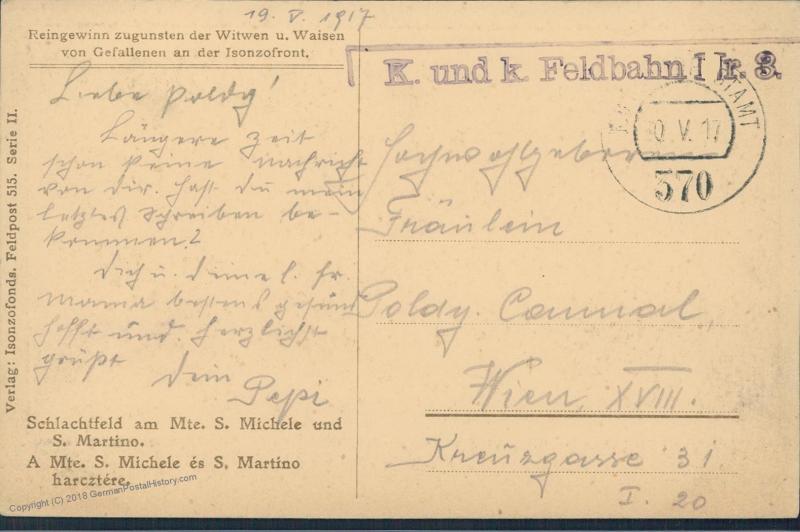 19. V. 1917
Reingewinn zugunsten der Witwen u. Waisen
von Gefallenen an der Isonzofront.
K. und k. Feldbahn Nr. 3.
0. V. 17
370
Verlag: Isonzofonds. Feldpost 515. Serie II.
Liebe Poldy!
Längere Zeit
schon keine Nachricht
von dir. Hast du mein
letztes Schreiben be-
kommen?
Dich u. deine l. Fr.
Mama bestens gesund
hofft und herzlichst
grüßt
Dein Pepi
Hochwohlgeboren
Fräulein
Poldy
Wien, XVIII.
Kreuzgasse 31
I. 20
Schlachtfeld am Mte. S. Michele und
S. Martino.
A Mte. S. Michele és S. Martino
harcztére.
Copyright (C) 2018 GermanPostalHistory.com